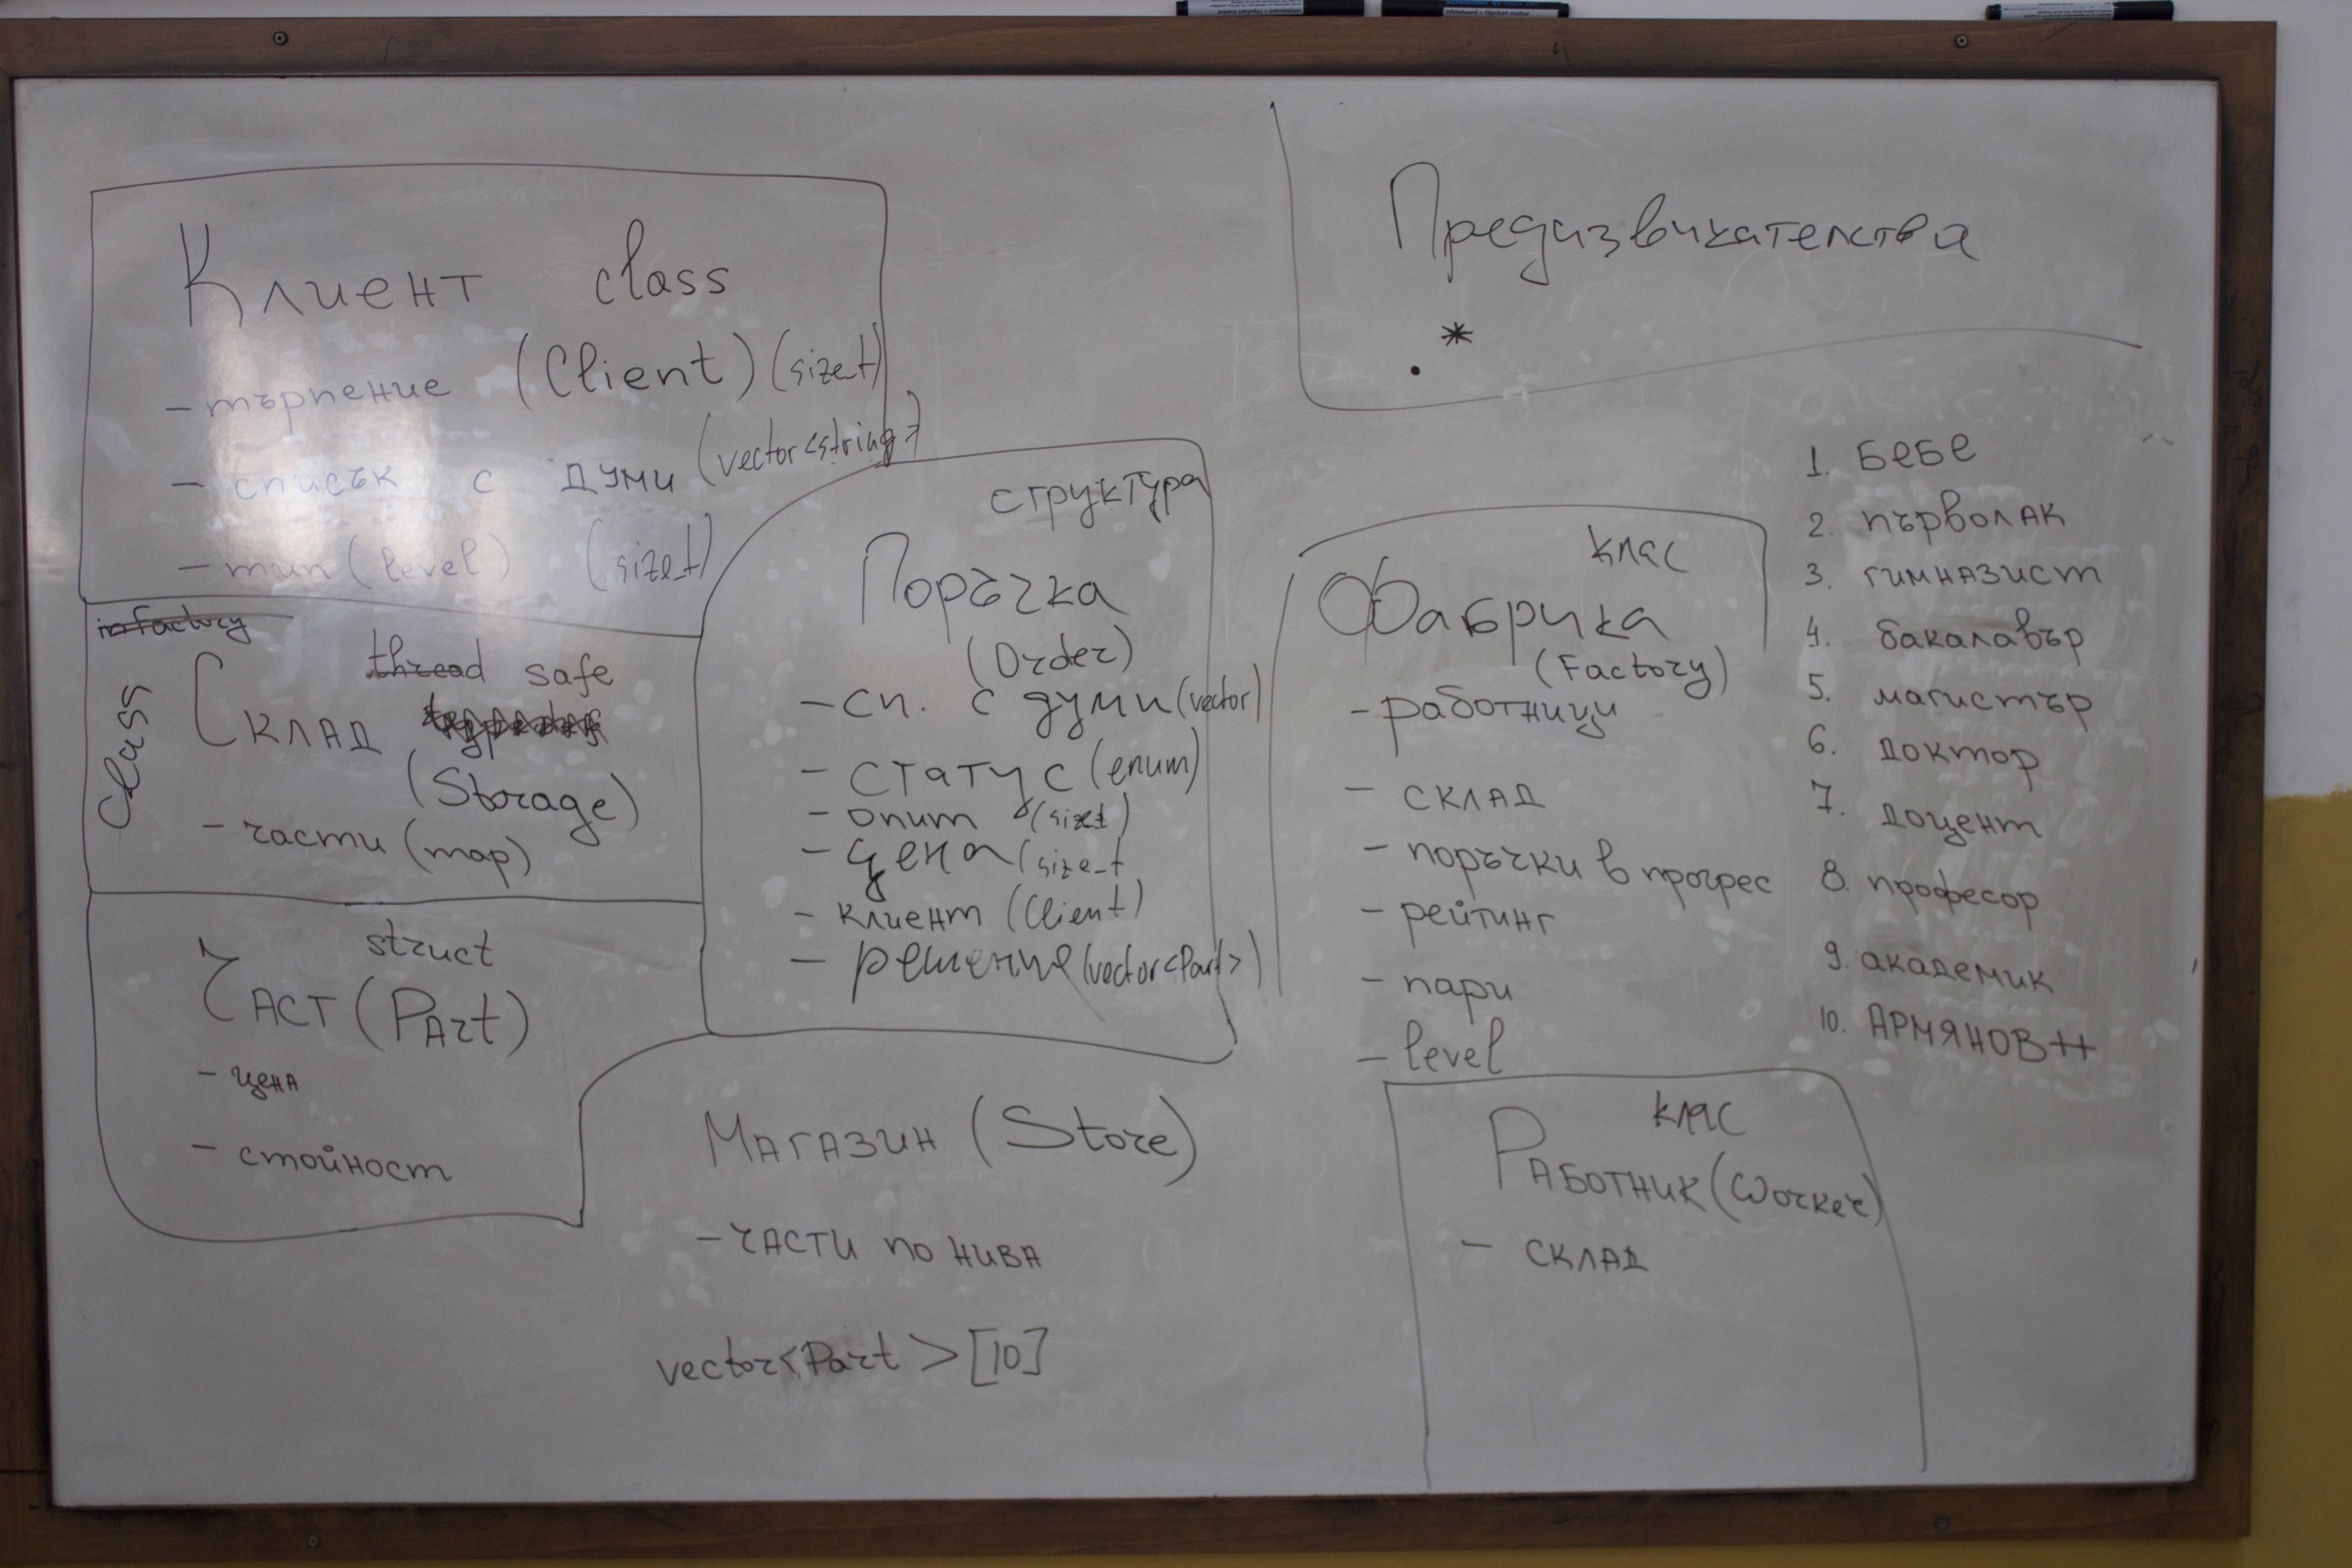 Клиент class
(Client) (size_t)
- търпение
- списък с думи (vector<string>)
- тип (level) (size_t)
in factory
class
thread safe
Склад
(Storage)
- части (map)
struct
Част (Part)
- цена
- стойност
структура
Поръчка
(Order)
- сп. с думи (vector)
- статус (enum)
- опит (size_t)
- цена (size_t
- клиент (Client)
- решение (vector<Part>)
Магазин (Store)
- части по нива
vector<Part>[10]
Предизвикателства
*
.
клас
Фабрика
(Factory)
- работници
- склад
- поръчки в прогрес
- рейтинг
- пари
- level
1. БЕБЕ
2. първолак
3. гимназист
4. бакалавър
5. магистър
6. доктор
7. доцент
8. професор
9. академик
10. АРМЯНОВ++
клас
Работник (Worker)
- склад